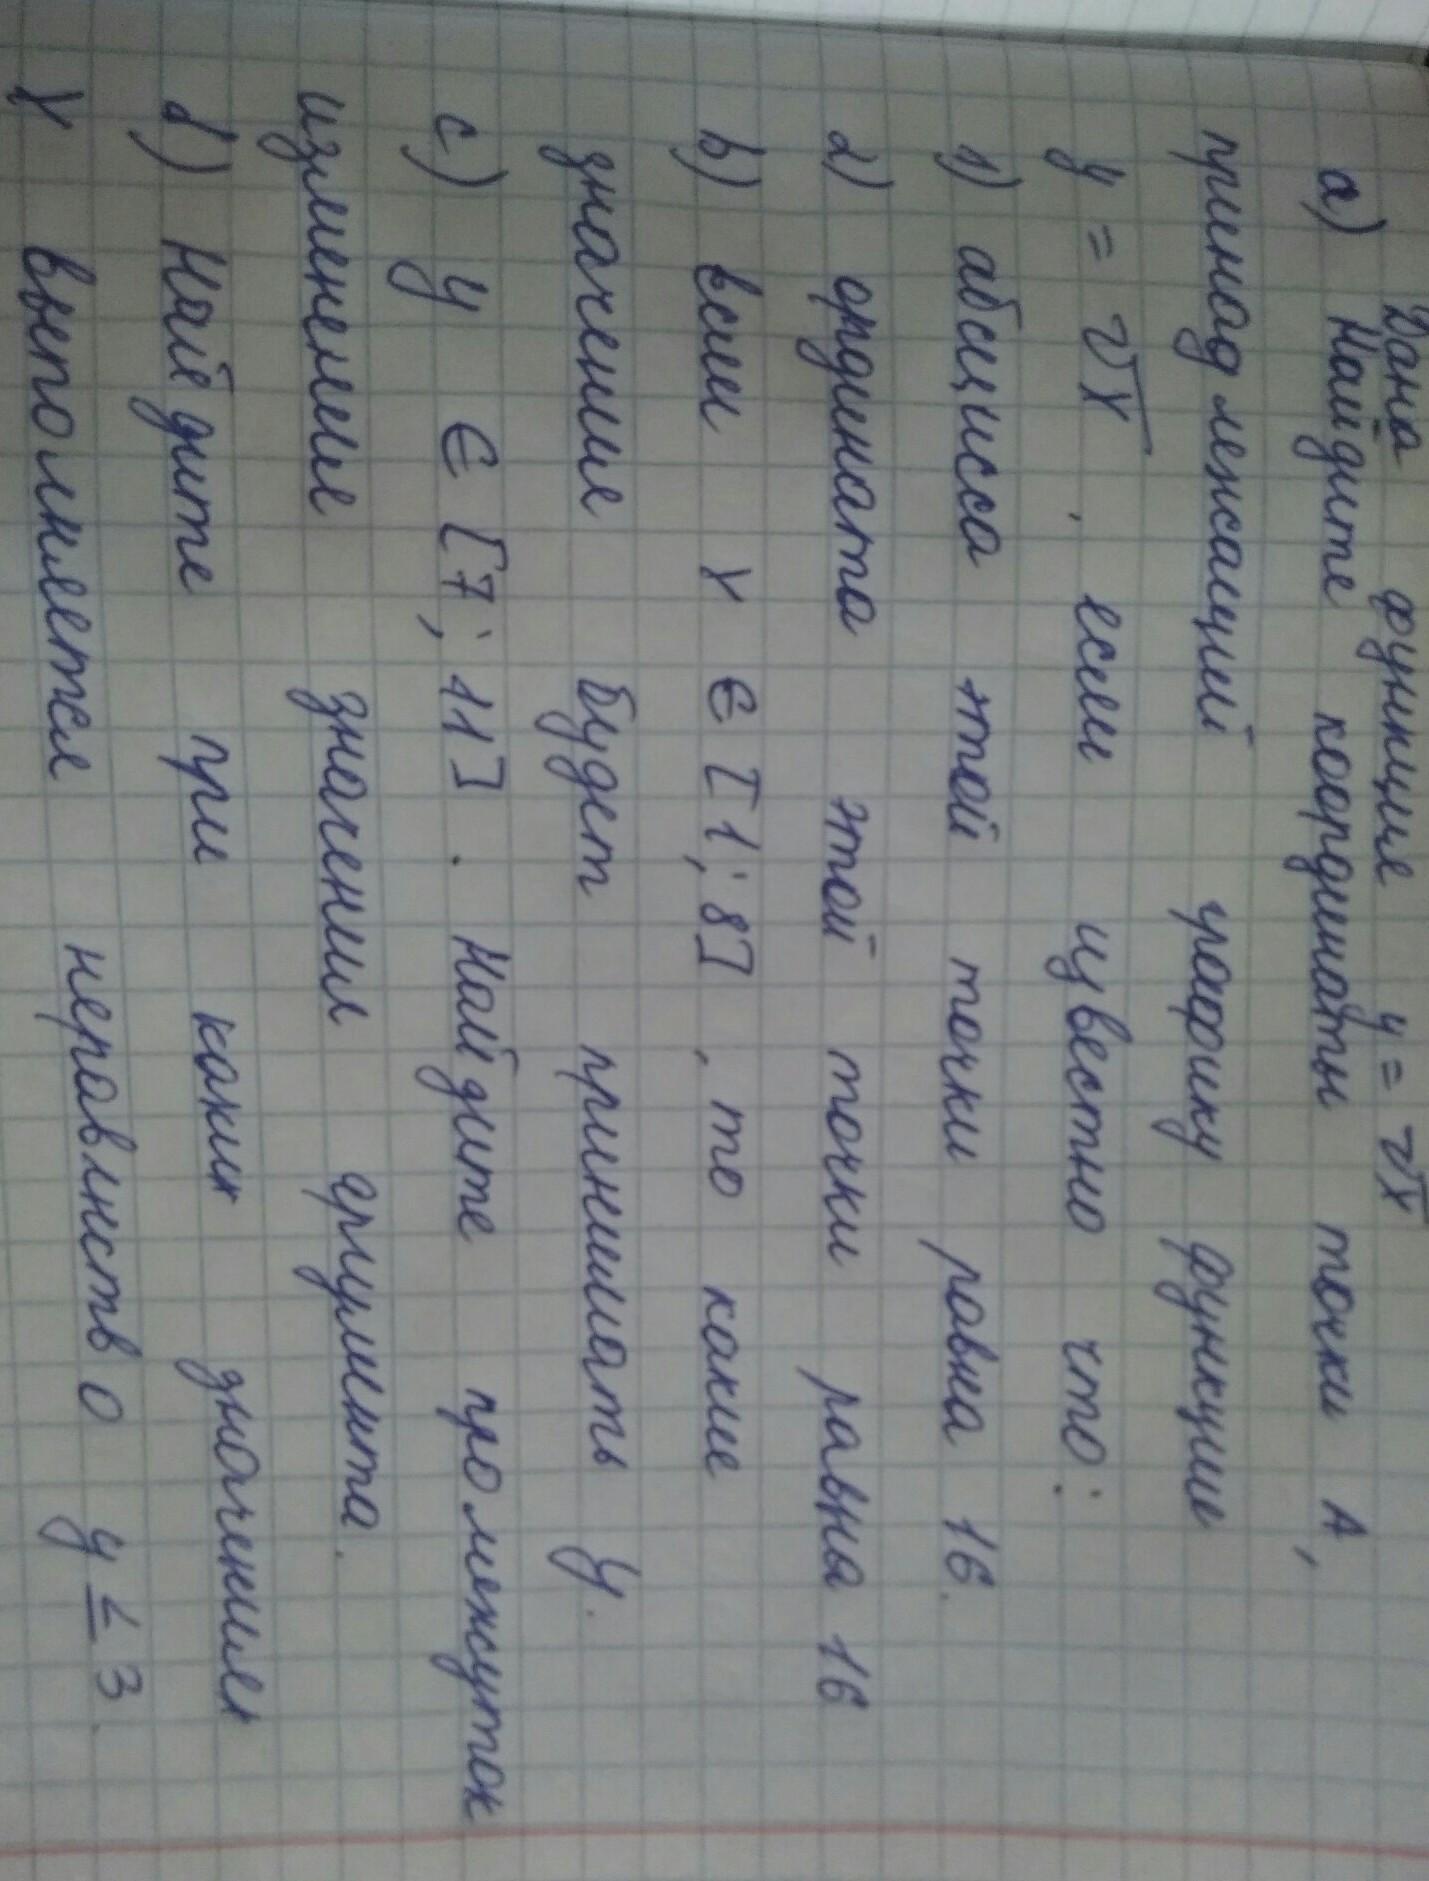 Дана функция y = √x
a) Найдите координаты точки A,
принадлежащий графику функцие
y = √x, если известно что:
1) абсцисса этой точки равна 16.
2) ордината этой точки равна 16
b) если x ∈ [1; 8], то какие
значение будет принимать y.
c) y ∈ [7; 11]. Найдите промежуток
изменение значении аргумента.
d) Найдите при каких значениях
x выполняется неравенств 0 y ≤ 3.